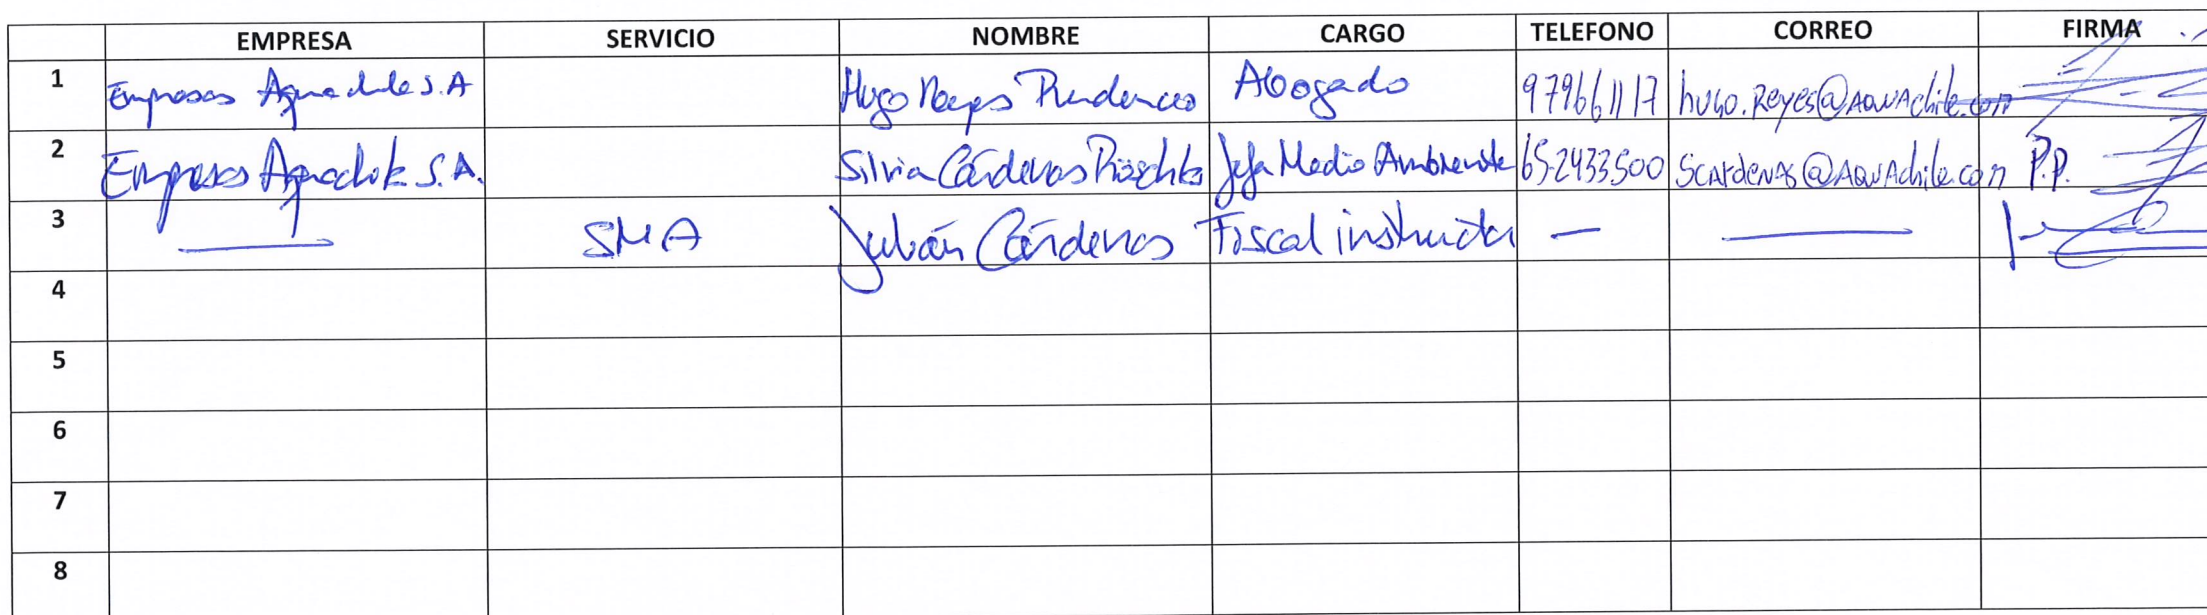 EMPRESA SERVICIO NOMBRE CARGO TELEFONO CORREO FIRMA
1 Empresas Aquachile S.A Hugo Reyes Prudencio Abogado 979661117 hugo.Reyes@AQUAchile.com
2 Empresas Aquachile S.A. Silvia Cárdenas Jefa Medio Ambiente 65-2433500 Scardenas@AQUAchile.com P.P.
3 — SMA Julián Cárdenas Fiscal instructor — —
4
5
6
7
8